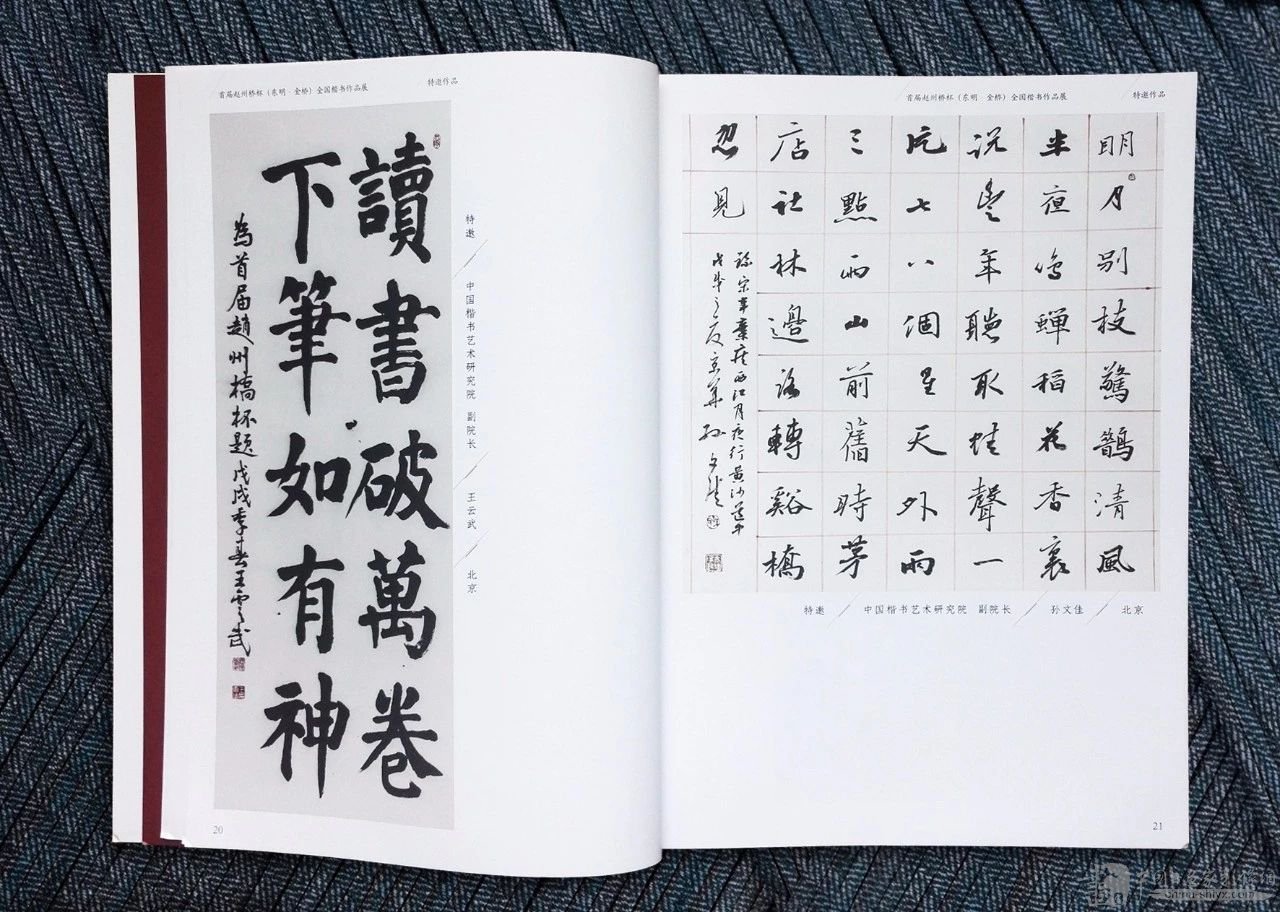 首届赵州桥杯（东明·金桥）全国楷书作品展 特邀作品
讀書破萬卷
下筆如有神
為首届趙州橋杯題戊戌季春王雲武
特邀 / 中国楷书艺术研究院 副院长 / 王云武 / 北京
20
首届赵州桥杯（东明·金桥）全国楷书作品展 特邀作品
明月别枝驚鵲清風
半夜鳴蟬稻花香裏
説豐年聽取蛙聲一
片七八個星天外兩
三點雨山前舊時茅
店社林邊路轉谿橋
忽見
録宋辛棄疾西江月夜行黄沙道中
戊戌之夏京華孫文佳
特邀 / 中国楷书艺术研究院 副院长 / 孙文佳 / 北京
21